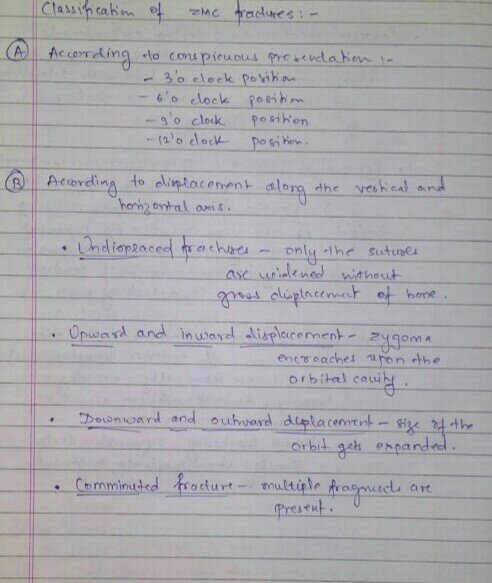 Classification of ZMC fractures :-
(A) According to conspicuous presentation :-
- 3'o clock position
- 6'o clock position
- 9'o clock position
- 12'o clock position.
(B) According to displacement along the vertical and
horizontal axis.
• Undisplaced fractures - only the sutures
are widened without
gross displacement of bone.
• Upward and inward displacement - zygoma
encroaches upon the
orbital cavity.
• Downward and outward displacement - size of the
orbit gets expanded.
• Comminuted fracture - multiple fragments are
present.